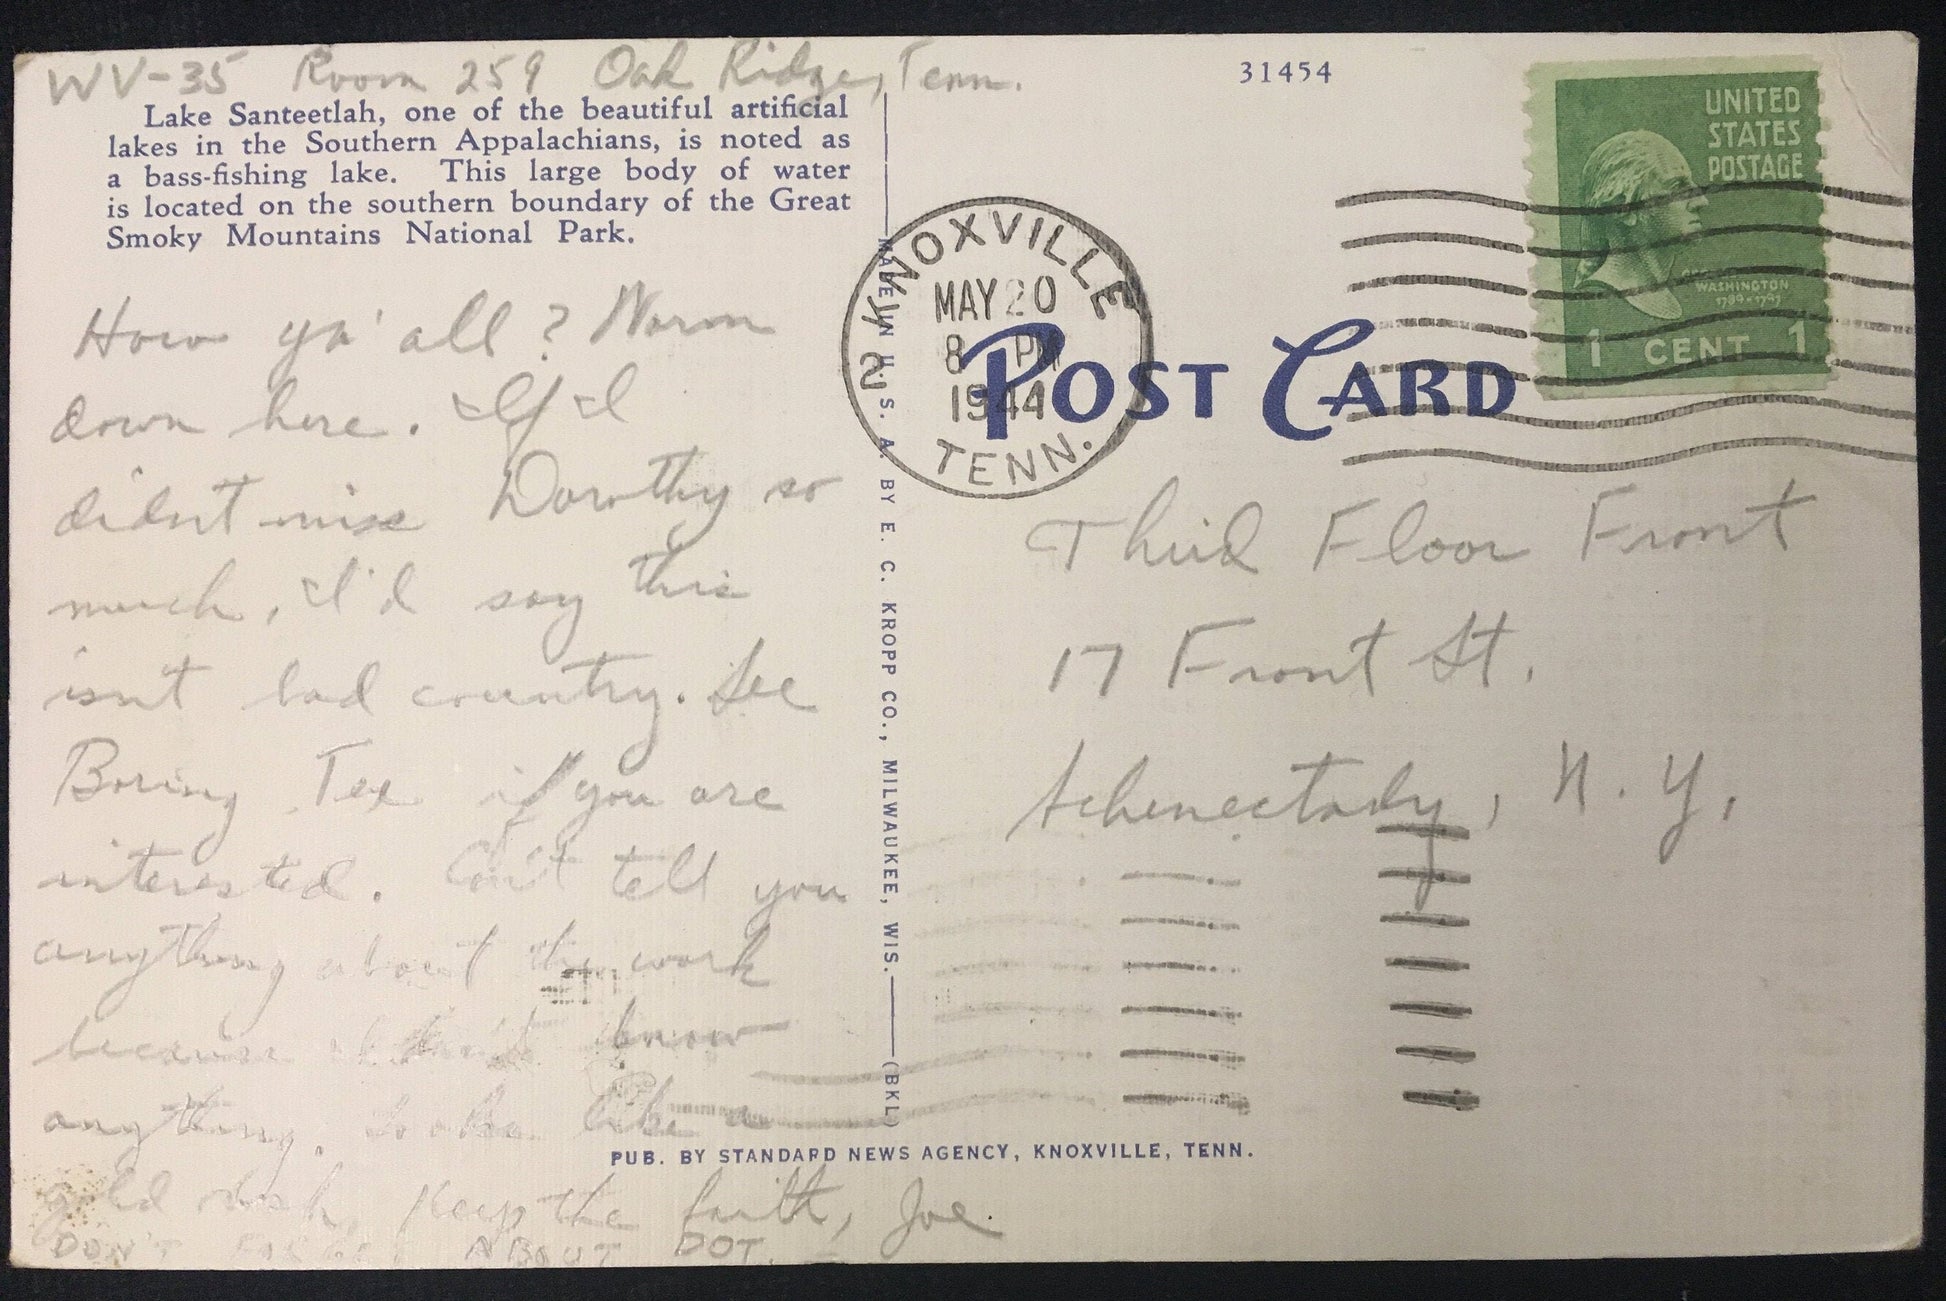 WV-35 Room 259 Oak Ridge, Tenn.
Lake Santeetlah, one of the beautiful artificial
lakes in the Southern Appalachians, is noted as
a bass-fishing lake. This large body of water
is located on the southern boundary of the Great
Smoky Mountains National Park.
How ya' all? Warm
down here. If I
didn't miss Dorothy so
much, I'd say this
isn't bad country. See
Boring, Tex if you are
interested. Can't tell you
anything about the work
because I don't know
anything. Looks like a
gold rush, Keep the faith, Joe.
DON'T FORGET ABOUT DOT.
31454
UNITED
STATES
POSTAGE
WASHINGTON
1789-1797
1 CENT 1
KNOXVILLE
MAY 20
8 PM
1944
2
TENN.
POST CARD
Third Floor Front
17 Front St.
Schenectady, N.Y.
MADE IN U.S.A. BY E. C. KROPP CO., MILWAUKEE, WIS. (BKL)
PUB. BY STANDARD NEWS AGENCY, KNOXVILLE, TENN.